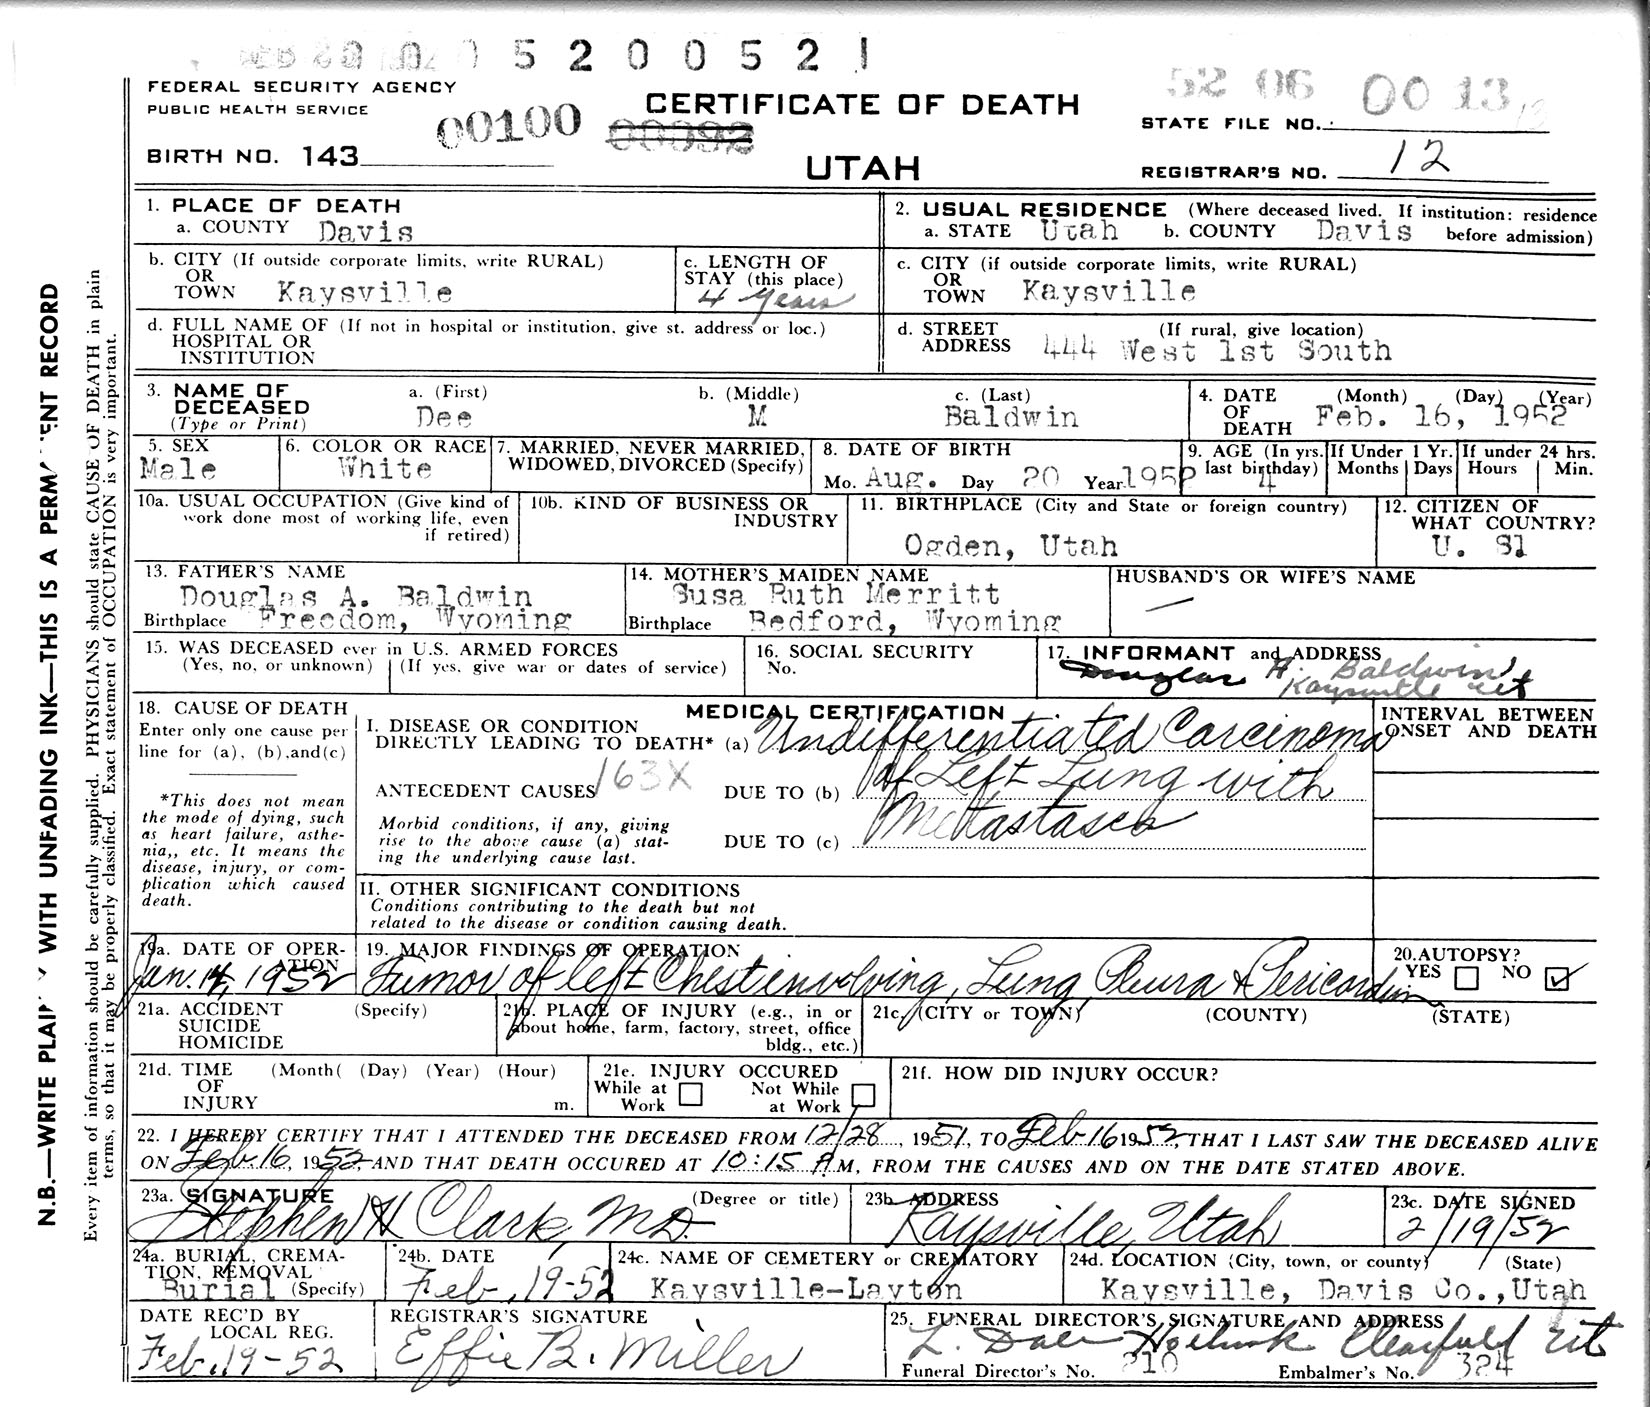 5 2 0 0 5 2 1
FEDERAL SECURITY AGENCY
PUBLIC HEALTH SERVICE
00100 00092
CERTIFICATE OF DEATH
UTAH
52 06 00 13
STATE FILE NO.
BIRTH NO. 143
REGISTRAR'S NO. 12
N.B.—WRITE PLAI WITH UNFADING INK—THIS IS A PERM ENT RECORD
Every item of information should be carefully supplied. PHYSICIANS should state CAUSE OF DEATH in plain
terms, so that it may be properly classified. Exact statement of OCCUPATION is very important.
1. PLACE OF DEATH
a. COUNTY Davis
2. USUAL RESIDENCE (Where deceased lived. If institution: residence
a. STATE Utah b. COUNTY Davis before admission)
b. CITY (If outside corporate limits, write RURAL)
OR
TOWN Kaysville
c. LENGTH OF
STAY (this place)
4 years
c. CITY (if outside corporate limits, write RURAL)
OR
TOWN Kaysville
d. FULL NAME OF (If not in hospital or institution, give st. address or loc.)
HOSPITAL OR
INSTITUTION
d. STREET (If rural, give location)
ADDRESS 444 West 1st South
3. NAME OF
DECEASED
(Type or Print)
a. (First) b. (Middle) c. (Last)
Dee M Baldwin
4. DATE (Month) (Day) (Year)
OF
DEATH Feb. 16, 1952
5. SEX
Male
6. COLOR OR RACE
White
7. MARRIED, NEVER MARRIED,
WIDOWED, DIVORCED (Specify)
8. DATE OF BIRTH
Mo. Aug. Day 20 Year 1952
9. AGE (In yrs.
last birthday) 4
If Under 1 Yr.
Months Days
If under 24 hrs.
Hours Min.
10a. USUAL OCCUPATION (Give kind of
work done most of working life, even
if retired)
10b. KIND OF BUSINESS OR
INDUSTRY
11. BIRTHPLACE (City and State or foreign country)
Ogden, Utah
12. CITIZEN OF
WHAT COUNTRY?
U. S1
13. FATHER'S NAME
Douglas A. Baldwin
Birthplace Freedom, Wyoming
14. MOTHER'S MAIDEN NAME
Susa Ruth Merritt
Birthplace Bedford, Wyoming
HUSBAND'S OR WIFE'S NAME
—
15. WAS DECEASED ever in U.S. ARMED FORCES
(Yes, no, or unknown) (If yes, give war or dates of service)
16. SOCIAL SECURITY
No.
17. INFORMANT and ADDRESS
Douglas A. Baldwin
Kaysville Ut
18. CAUSE OF DEATH
Enter only one cause per
line for (a), (b),and(c)
*This does not mean
the mode of dying, such
as heart failure, asthe-
nia,, etc. It means the
disease, injury, or com-
plication which caused
death.
MEDICAL CERTIFICATION
I. DISEASE OR CONDITION
DIRECTLY LEADING TO DEATH* (a) Undifferentiated Carcinoma
163X
ANTECEDENT CAUSES DUE TO (b) of Left Lung with
Morbid conditions, if any, giving
rise to the above cause (a) stat-
ing the underlying cause last.
DUE TO (c) Metastases
INTERVAL BETWEEN
ONSET AND DEATH
II. OTHER SIGNIFICANT CONDITIONS
Conditions contributing to the death but not
related to the disease or condition causing death.
19a. DATE OF OPER-
ATION
Jan. 14, 1952
19. MAJOR FINDINGS OF OPERATION
Tumor of left Chest envolving, Lung, Pleura & Pericardium
20. AUTOPSY?
YES NO ✓
21a. ACCIDENT (Specify)
SUICIDE
HOMICIDE
21b. PLACE OF INJURY (e.g., in or
about home, farm, factory, street, office
bldg., etc.)
21c. (CITY or TOWN) (COUNTY) (STATE)
21d. TIME (Month( (Day) (Year) (Hour)
OF
INJURY m.
21e. INJURY OCCURED
While at Not While
Work at Work
21f. HOW DID INJURY OCCUR?
22. I HEREBY CERTIFY THAT I ATTENDED THE DECEASED FROM 12/28, 1951, TO Feb 16 1952, THAT I LAST SAW THE DECEASED ALIVE
ON Feb 16, 1952 AND THAT DEATH OCCURED AT 10:15 A M, FROM THE CAUSES AND ON THE DATE STATED ABOVE.
23a. SIGNATURE (Degree or title)
Stephen H Clark, M.D.
23b ADDRESS
Kaysville, Utah
23c. DATE SIGNED
2/19/52
24a. BURIAL, CREMA-
TION, REMOVAL
Burial (Specify)
24b. DATE
Feb, 19-52
24c. NAME OF CEMETERY or CREMATORY
Kaysville-Layton
24d. LOCATION (City, town, or county) (State)
Kaysville, Davis Co.,Utah
DATE REC'D BY
LOCAL REG.
Feb. 19-52
REGISTRAR'S SIGNATURE
Effie B. Miller
25. FUNERAL DIRECTOR'S SIGNATURE AND ADDRESS
L. Dale Clearfield Ut
Funeral Director's No. 210 Embalmer's No. 324